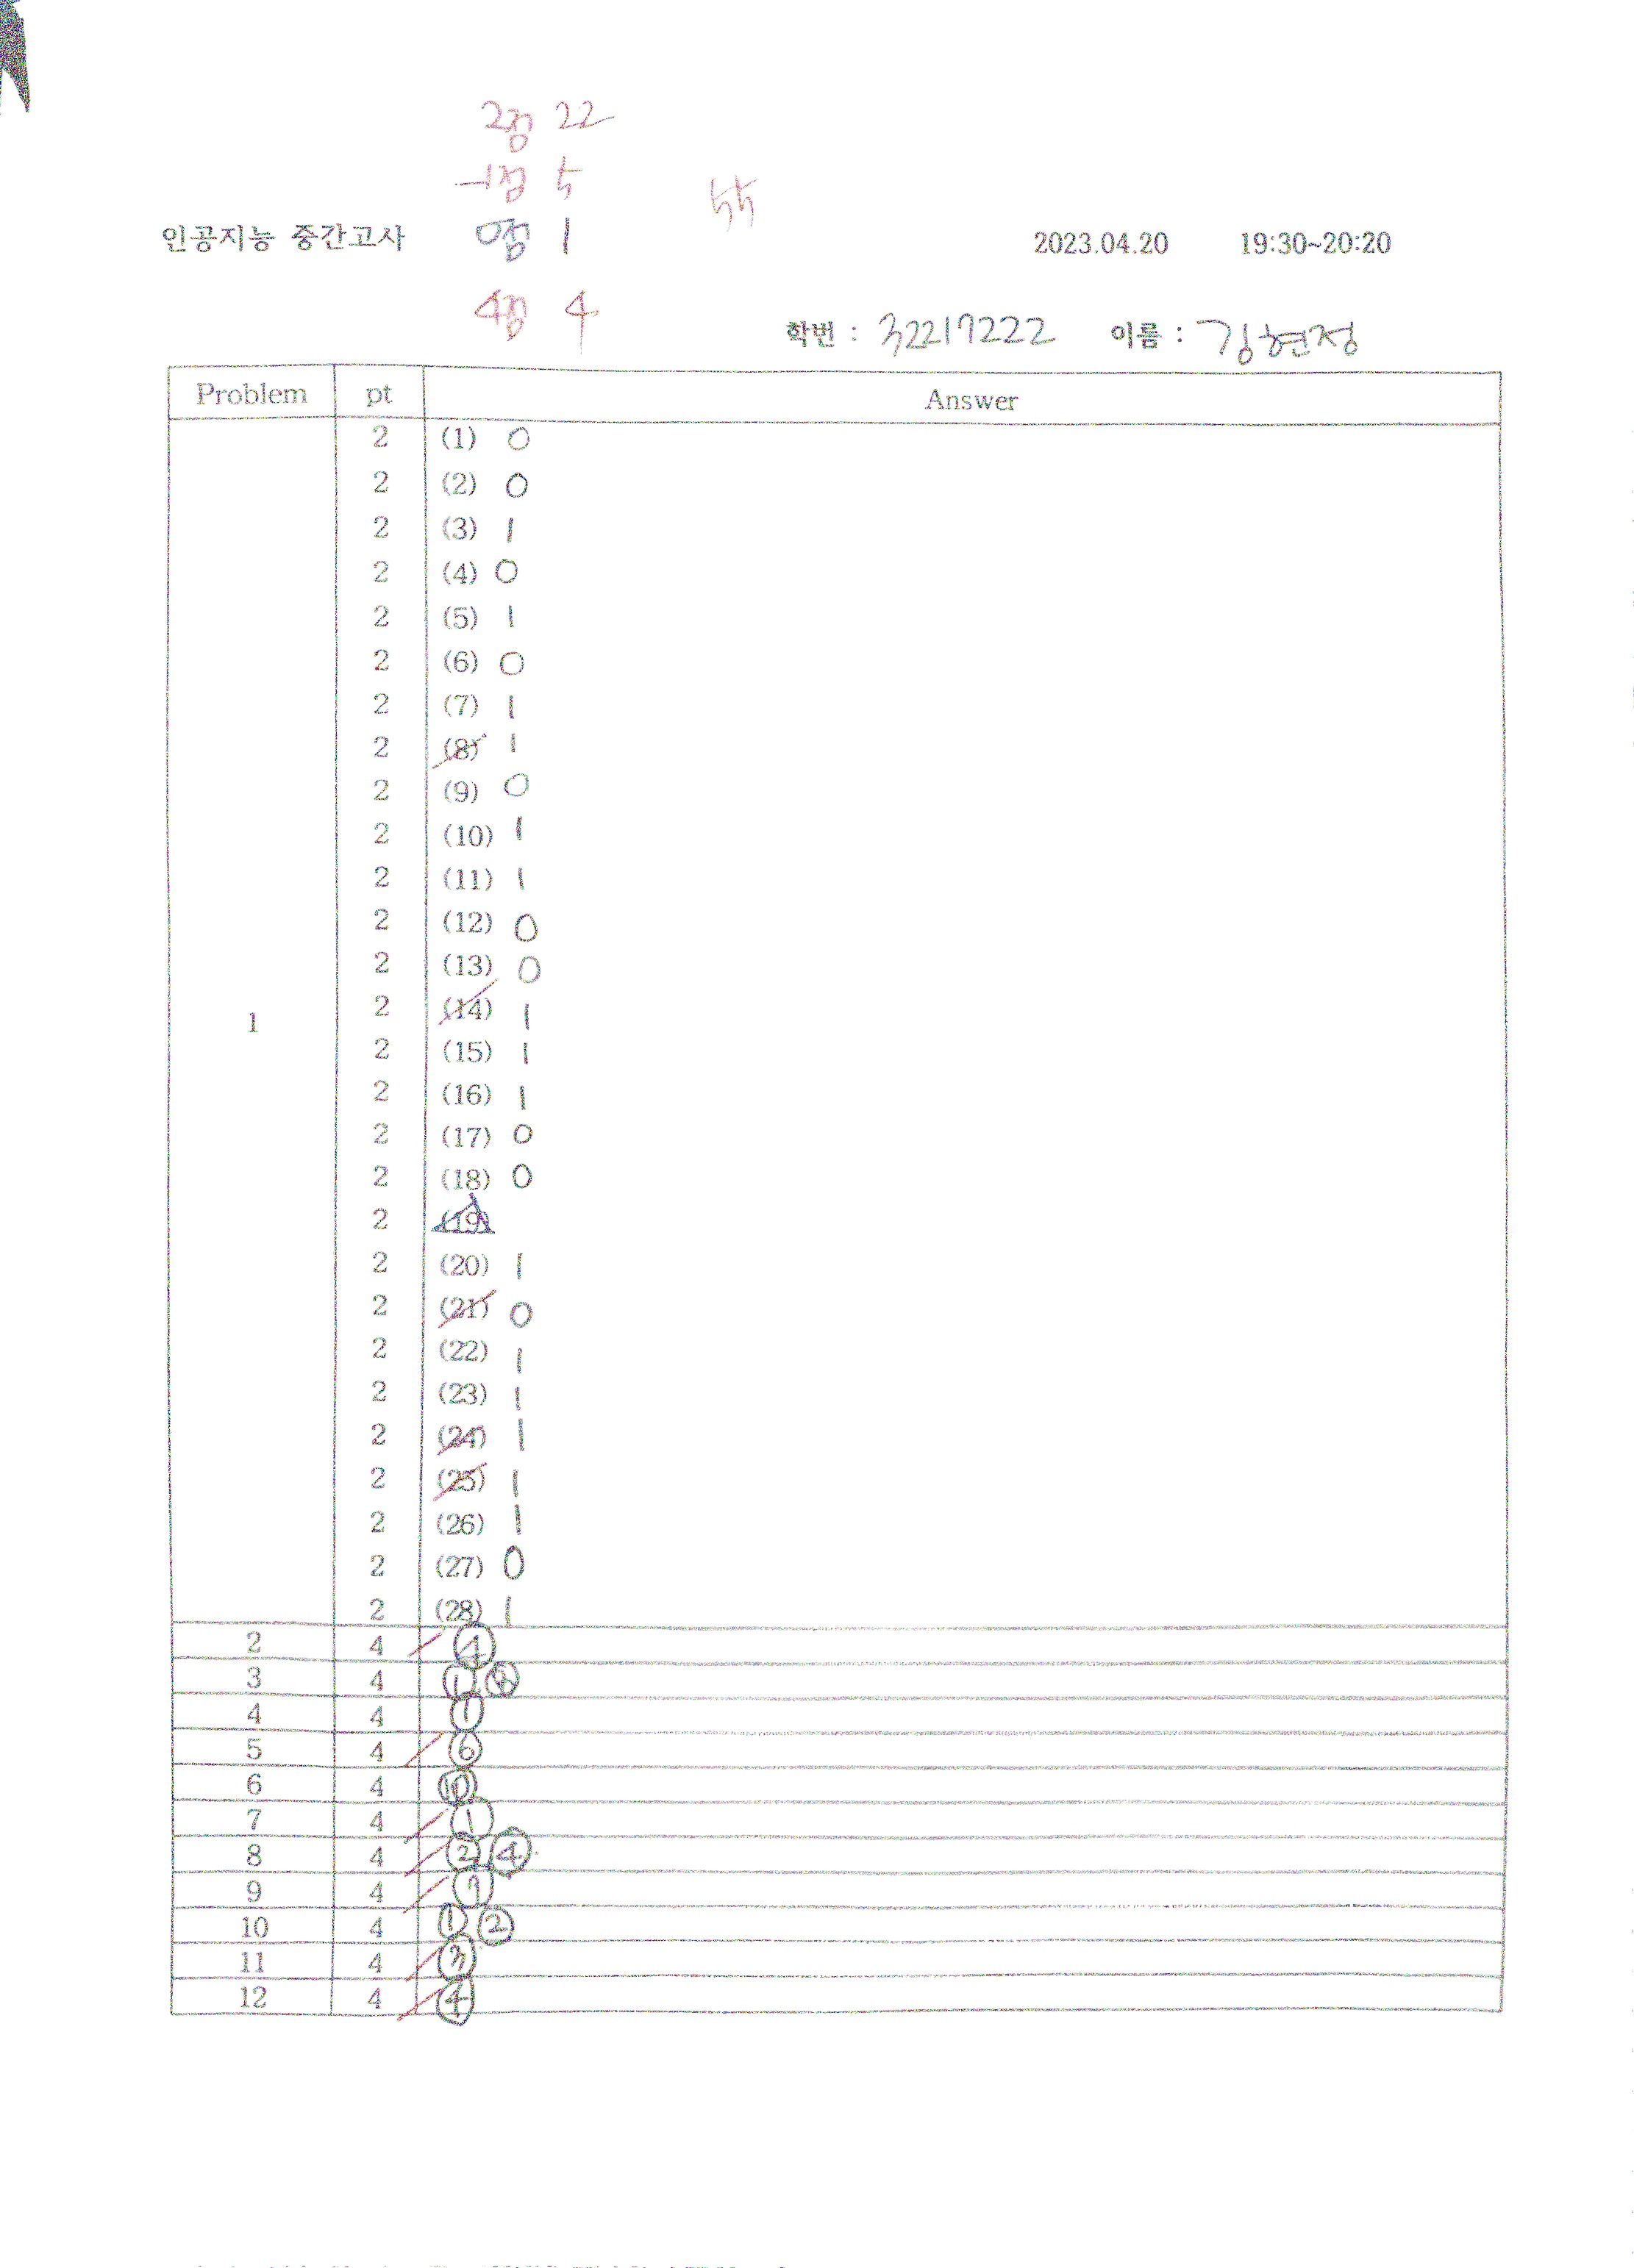 2점 22
-1점 5
55
인공지능 중간고사 0점 1 2023.04.20 19:30~20:20
4점 4
학번 : 32217222 이름 : 김현정
Problem pt Answer
1
2 (1) 0
2 (2) 0
2 (3) 1
2 (4) 0
2 (5) 1
2 (6) 0
2 (7) 1
2 (8) 1
2 (9) 0
2 (10) 1
2 (11) 1
2 (12) 0
2 (13) 0
2 (14) 1
2 (15) 1
2 (16) 1
2 (17) 0
2 (18) 0
2 (19)
2 (20) 1
2 (21) 0
2 (22) 1
2 (23) 1
2 (24) 1
2 (25) 1
2 (26) 1
2 (27) 0
2 (28) 1
2 4 ④
3 4 ①
4 4 ①
5 4 ⑥
6 4
7 4 ①
8 4 ② ④
9 4
10 4 ① ②
11 4 ③
12 4 ④